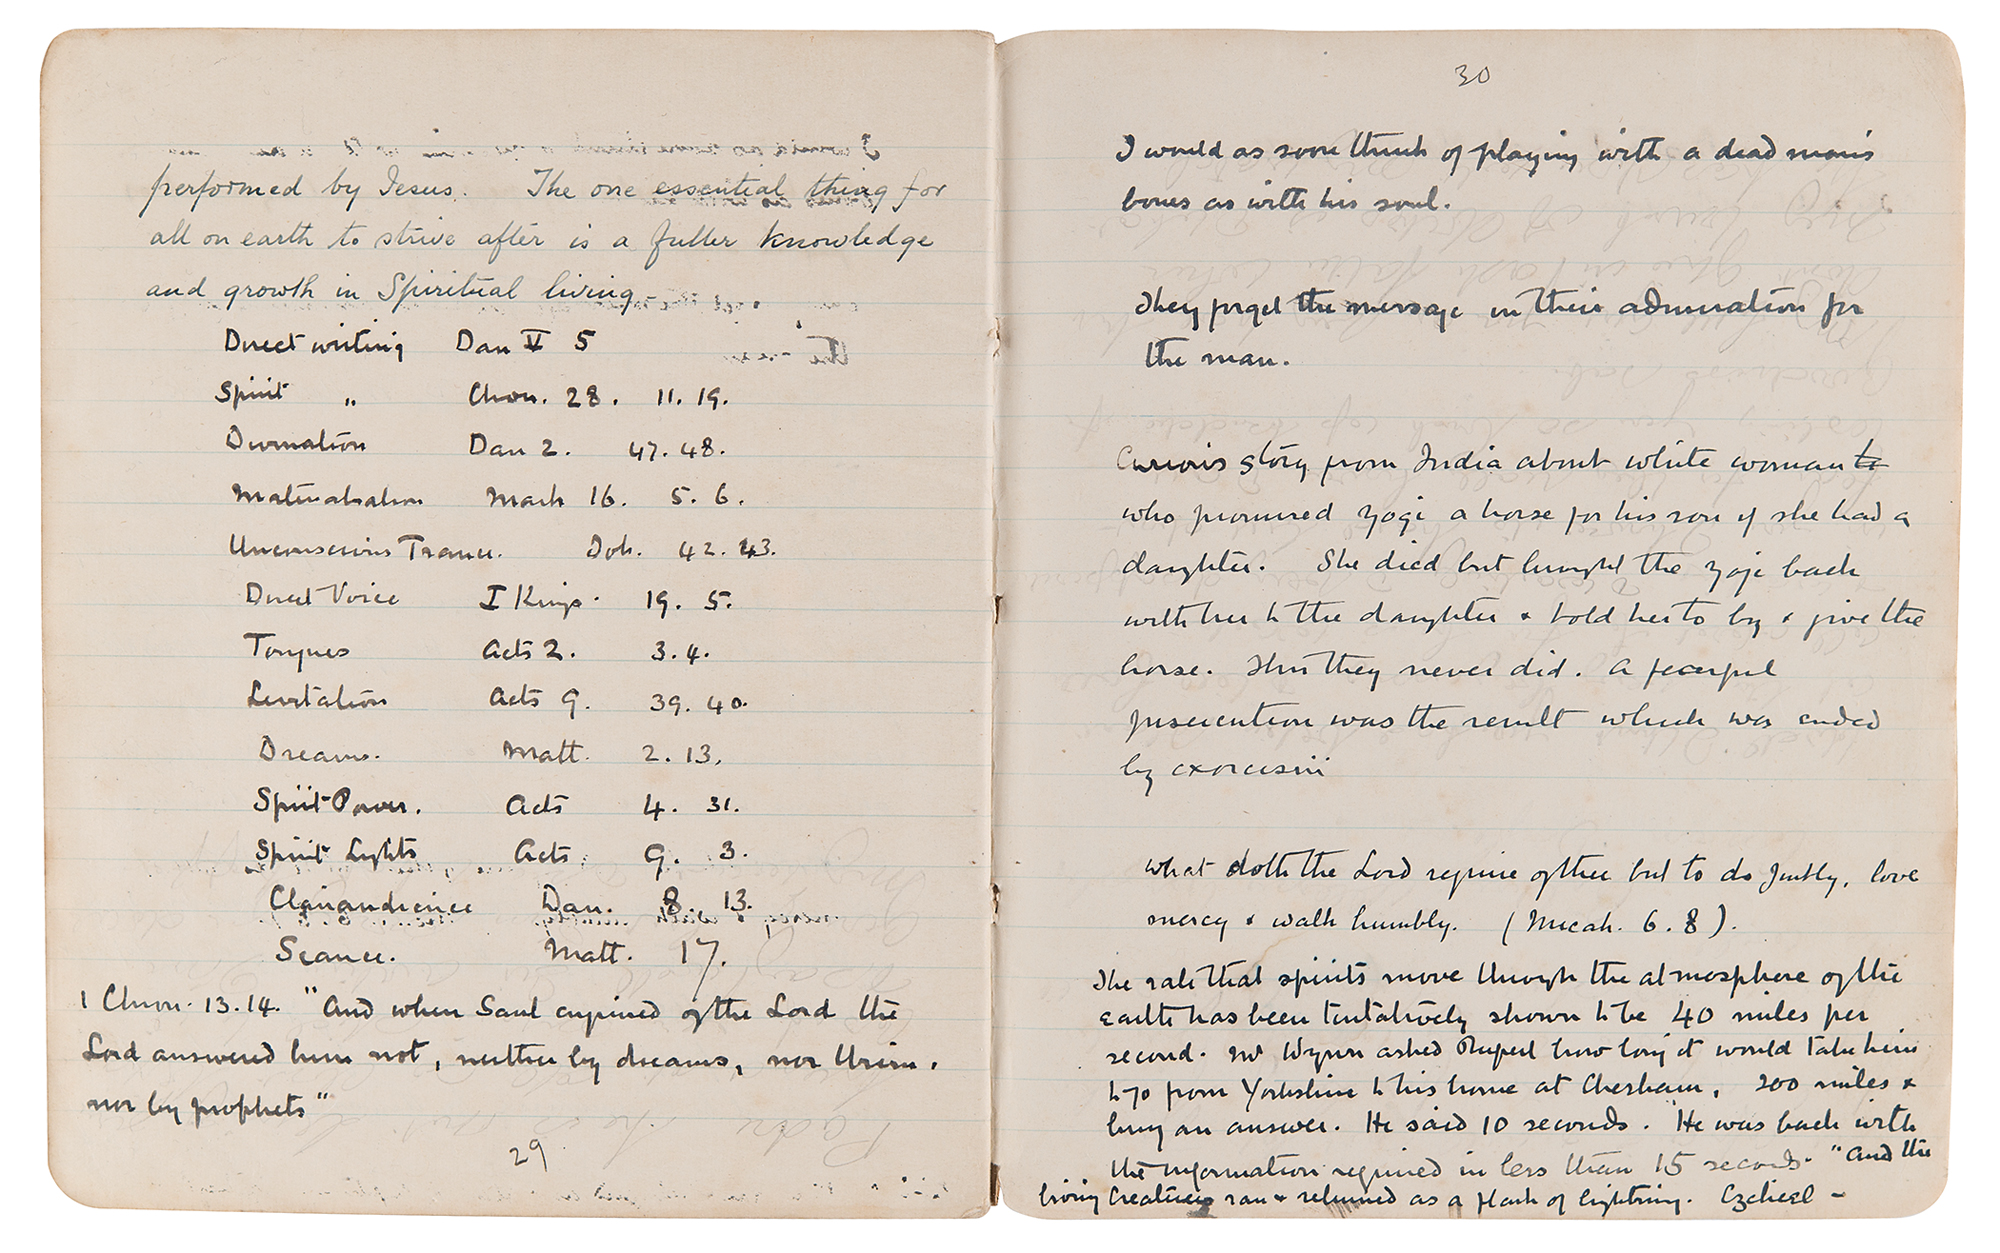 performed by Jesus. The one essential thing for
all on earth to strive after is a fuller knowledge
and growth in Spiritual living
Direct writing Dan V 5
Spirit " Chron. 28. 11. 19.
Divination Dan 2. 47. 48.
Materialisation Mark 16. 5. 6.
Unconscious Trance. Job. 42. 43.
Direct Voice I Kings. 19. 5.
Tongues Acts 2. 3. 4.
Levitation Acts 9. 39. 40.
Dreams. Matt. 2. 13.
Spirit Power. Acts 4. 31.
Spirit Lights Acts 9. 3.
Clairaudience Dan. 8. 13.
Seance. Matt. 17.
1 Chron. 13.14. "And when Saul enquired of the Lord the
Lord answered him not, neither by dreams, nor Urim.
nor by prophets"
29
30
I would as soon think of playing with a dead man's
bones as with his soul.
They forget the message in their admiration for
the man.
Curious story from India about white woman to
who promised Yogi a horse for his son if she had a
daughter. She died but brought the Yogi back
with her to the daughter & told her to by & give the
horse. This they never did. A fearful
persecution was the result which was ended
by exorcism
What doth the Lord require of thee but to do Justly, love
mercy & walk humbly. (Micah. 6. 8).
The rate that spirits move through the atmosphere of the
earth has been tentatively shown to be 40 miles per
second. Mr Wynn asked Rupert how long it would take him
to go from Yorkshire to his home at Chesham, 200 miles &
bring an answer. He said 10 seconds. He was back with
the information required in less than 15 seconds. "And the
living creatures ran & returned as a flash of lightning. Ezekiel -